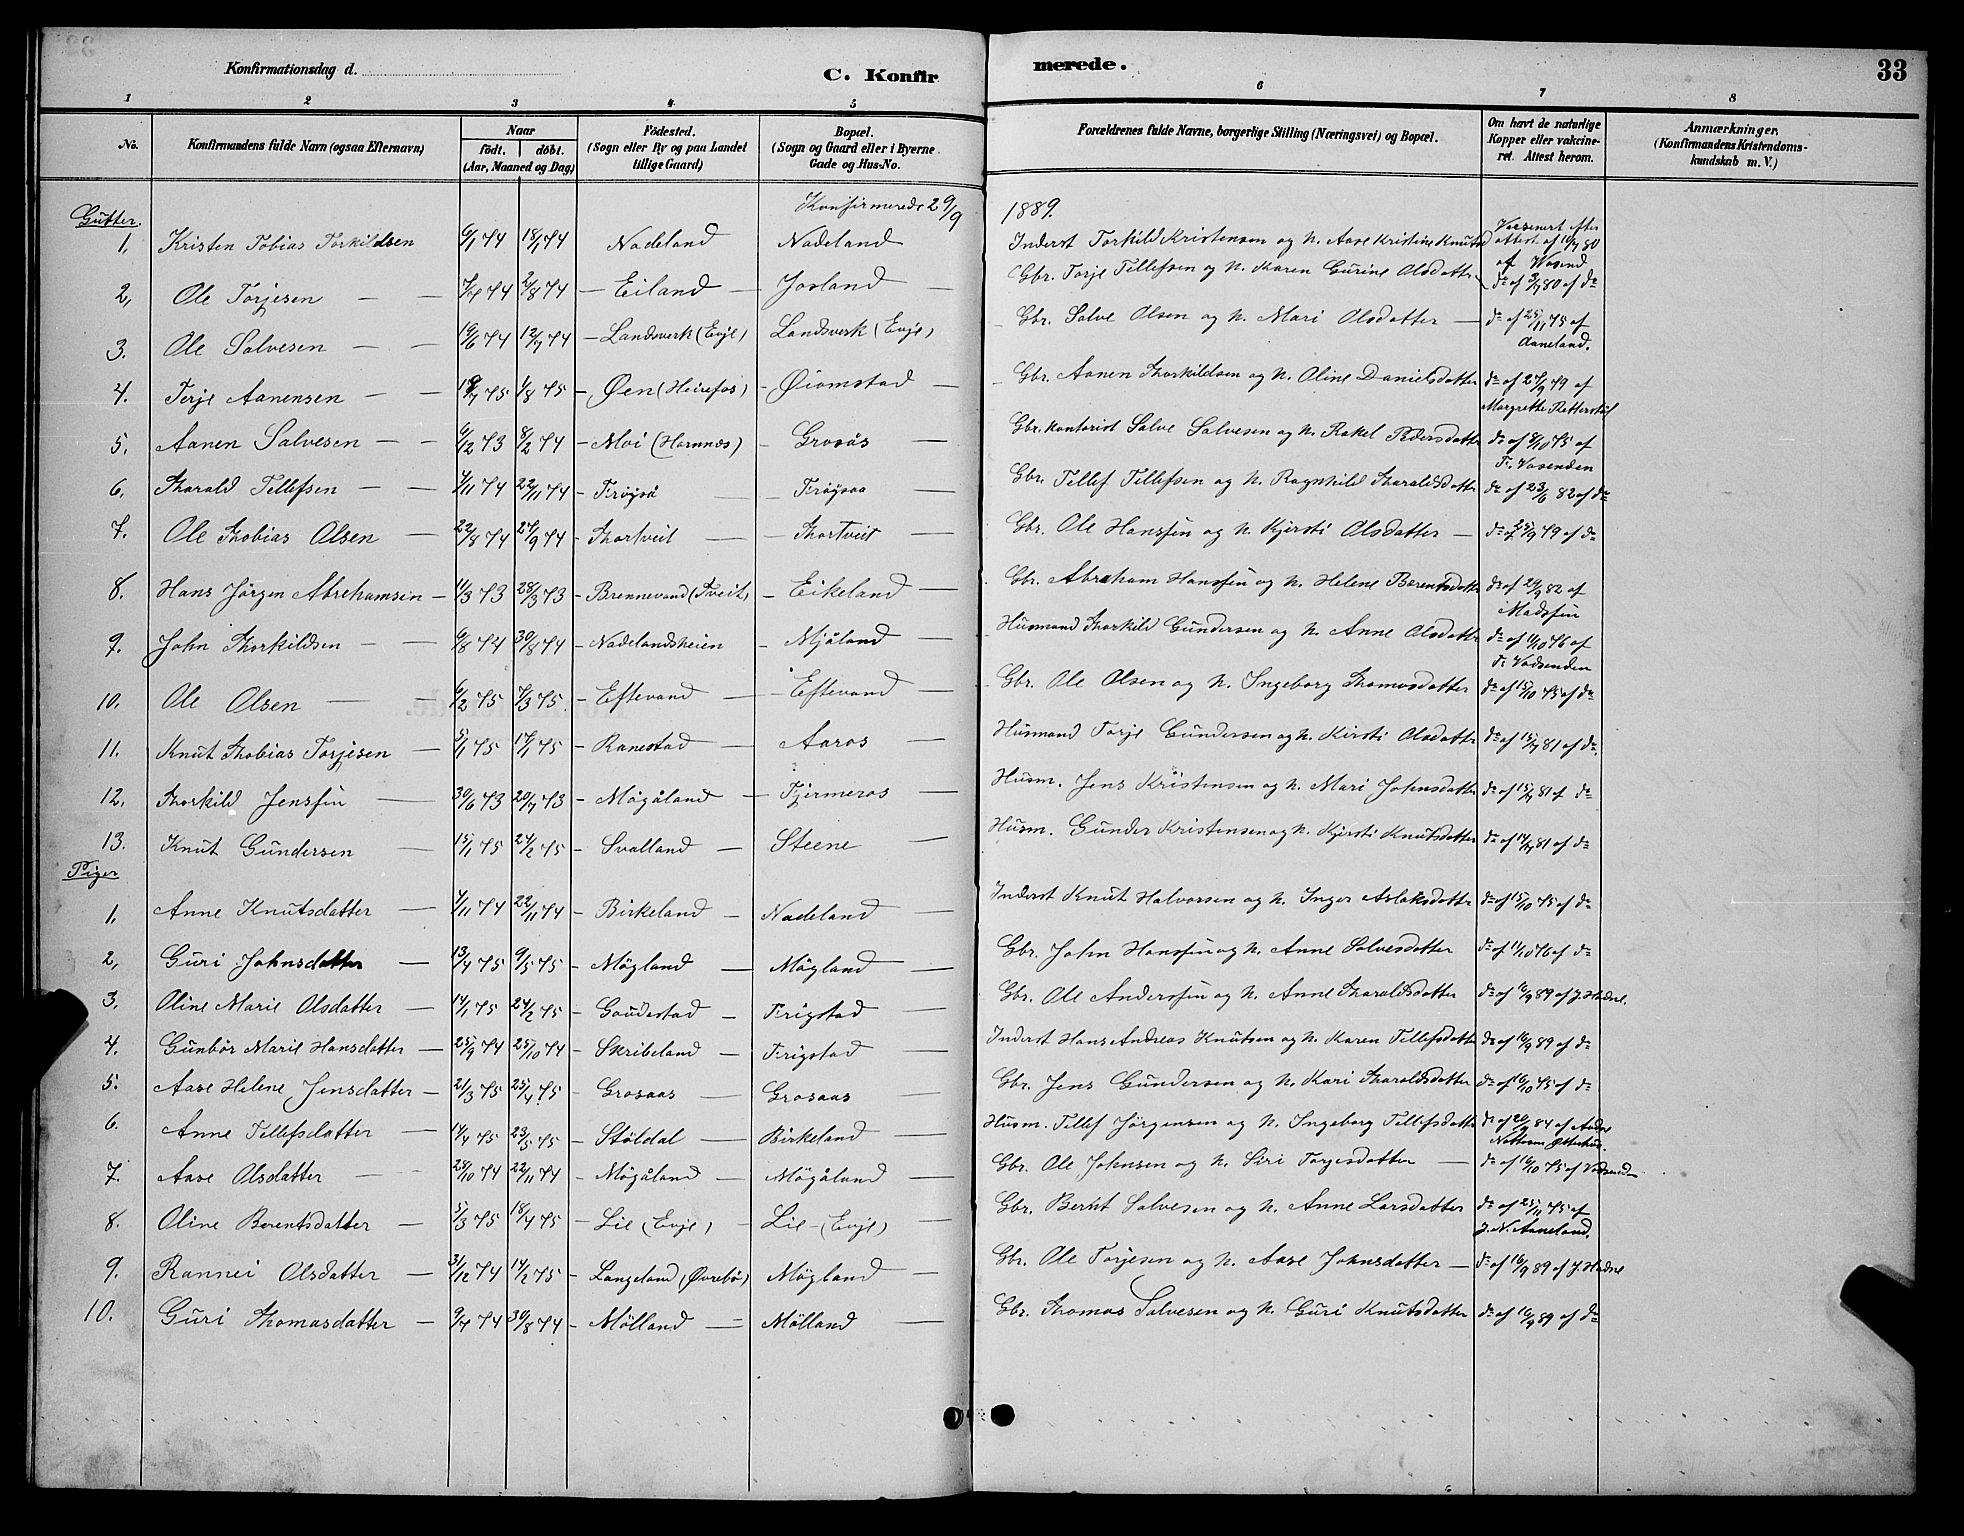 Konfirmationsdag d.
C. Konfir
merede.
33
1 2 3 4 5 6 7 8
No. Konfirmandens fulde Navn (ogsaa Efternavn) Naar født. døbt. (Aar, Maaned og Dag) Födested. (Sogn eller By og paa Landet tillige Gaard) Bopæl. (Sogn og Gaard eller i Byerne Gade og Hus-No. Forældrenes fulde Navne, borgerlige Stilling (Næringsvei) og Bopæl. Om havt de naturlige Kopper eller vakcineret. Attest herom. Anmærkninger. (Konfirmandens Kristendomskundskab m. V.)
Konfirmerede 29/9 1889.
Gutter.
1, Kristen Tobias Torkildsen 6/1 74 18/1 74 Nadeland Nadeland Inderst Torkild Kristensen og h. Aase Kristine Knutsd Vaccinert efter attest af 16/7 80 af Wosend
2, Ole Torjesen — — 2/8 74 — Eiland — Josland — Gbr. Torje Tellefsen og h. Karen Gurine Olsdatter dº af 3/7 80 af dº
3. Ole Salvesen — — 19/6 74 12/7 74 — Landsverk (Evje) Landsverk (Evje) Gbr. Salve Olsen og h. Mari Olsdatter — dº af 25/11 75 af Aaneland.
4. Terje Aanensen — — 1/8 75 — Øen (Heirefos) — Øiomstad — Gbr. Aanen Thorkildsen og h. Oline Danielsdatter dº af 27/9 79 af Margrethe Retterstøl
5. Aanen Salvesen — — 6/12 73 8/2 74 — Moi (Hornnes) — Grosås — Gbr. kontorist Salve Salvesen og h. Rakel Pedersdatter dº af 8/10 75 af T. Vosenden
6. Tharald Tellefsen — — 1/11 74 22/11 74 — Frøyså — Frøysaa — Gbr. Tellef Tellefsen og h. Ragnhild Tharaldsdatter dº af 23/6 82 af dº
7. Ole Thobias Olsen — 22/8 74 27/9 74 — Thortveit — — Thortveit — Gbr. Ole Hanssen og h. Kjersti Olsdatter — dº af 25/9 79 af dº
8. Hans Jørgen Abrahamsen — 11/3 73 28/3 73 — Brennevand (Tveit) — Eikeland — Gbr. Abraham Hanssen og h. Helene Berentsdatter dº af 24/9 82 af Madssen
9. John Thorkildsen — — 6/8 74 30/8 74 — Nadelandsheien — Mjåland — Husmand Thorkild Gundersen og h. Anne Olsdatter dº af 11/10 76 af T. Vodsenden
10. Ole Olsen — 6/2 75 7/3 75. — Eftevand — — Eftevand — Gbr. Ole Olsen og h. Ingeborg Thomasdatter dº af 15/10 75 af dº
11. Knut Thobias Torjesen — 5/1 75 17/1 75 — Ranestad — Aaros — Husmand Torje Gundersen og h. Kirsti Olsdatter dº af 15/7 81 af dº.
12. Thorkild Jenssen — 30/6 73 20/7 73 — Møgåland — Fjermeros — Husm. Jens Kristensen og h. Mari Johnsdatter dº af 15/7 81 af dº
13. Knut Gundersen — 15/1 75 24/2 75 — Svalland — Steene — Husm. Gunder Kristensen og h. Kjersti Knutsdatter dº af 14/7 81 af dº
Piger
1, Anne Knutsdatter — 1/11 74 22/11 74 — Birkeland — Nadeland — Inderst Knut Halvorsen og h. Inger Aslaksdatter dº af 15/10 75 af dº
2, Guri Johnsdatter — 13/4 75 9/5 75 — Møgland — Møgland — Gbr. John Hanssen og h. Anne Salvesdatter dº af 11/10 76 af dº
3. Oline Marie Olsdatter — 14/1 75 24/2 75 — Goudestad — Frigstad — Gbr. Ole Anderssen og h. Anne Tharaldsdatter dº af 16/9 89 af J. Hodne.
4. Gunbør Marie Hansdatter — 25/9 74 25/10 74 — Skribeland — Frigstad — Inderst Hans Andreas Knutsen og h. Karen Tellefsdatter dº af 16/9 89 af dº
5. Aase Helene Jensdatter — 21/3 75 25/4 75 — Grosaas — Grosaas — Gbr. Jens Gundersen og h. Kari Tharaldsdatter dº af 16/10 75 af dº
6. Anne Tellefsdatter — 14/4 75 23/5 75 — Støldal — Birkeland — Husm. Tellef Jørgensen og h. Ingeborg Tellefsdatter
7. Aase Olsdatter — 28/10 74 22/11 74 — Møgåland — Møgåland — Gbr. Ole Johnsen og h. Siri Torjesdatter — dº af 16/10 75 af
8. Oline Berentsdatter — 5/3 75 18/4 75 — Lie (Evje) — Lie — (Evje) — Gbr. Bernt Salvesen og h. Anne Larsdatter dº af 25/11 75 af J. N. Aaneland.
9. Rannei Olsdatter — 31/12 74 14/2 75 — Langeland (Øvrebø) Møgland — Gbr. Ole Torjesen og h. Aase Johnsdatter — dº af 16/9 89 af J. Hodne
10. Guri Thomasdatter — 9/7 74 30/8 74 — Mølland — Mølland — Gbr. Thomas Salvesen og h. Guri Knutsdatter dº af 16/9 89 af dº